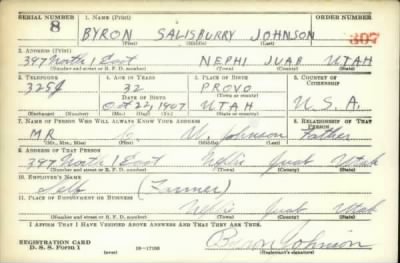 SERIAL NUMBER 1. NAME (Print) ORDER NUMBER
8 BYRON SALISBURRY JOHNSON 307
(First) (Middle) (Last)
2. ADDRESS (Print)
397 North 1 East NEPHI JUAB UTAH
(Number and street or R. F. D. number) (Town) (County) (State)
3. TELEPHONE 4. AGE IN YEARS 5. PLACE OF BIRTH 6. COUNTRY OF CITIZENSHIP
325J 32 PROVO
DATE OF BIRTH (Town or county)
Oct 22, 1907 UTAH U.S.A.
(Exchange) (Number) (Mo.) (Day) (Yr.) (State or country)
7. NAME OF PERSON WHO WILL ALWAYS KNOW YOUR ADDRESS 8. RELATIONSHIP OF THAT PERSON
MR Johnson Father
(Mr., Mrs., Miss) (First) (Middle) (Last)
9. ADDRESS OF THAT PERSON
397 North 1 East Nephi Juab Utah
(Number and street or R. F. D. number) (Town) (County) (State)
10. EMPLOYER'S NAME
Self (Farmer)
11. PLACE OF EMPLOYMENT OR BUSINESS
Nephi Juab Utah
(Number and street or R. F. D. number) (Town) (County) (State)
I AFFIRM THAT I HAVE VERIFIED ABOVE ANSWERS AND THAT THEY ARE TRUE.
REGISTRATION CARD
D. S. S. Form 1 (over) 16—17105 Byron Johnson
(Registrant's signature)